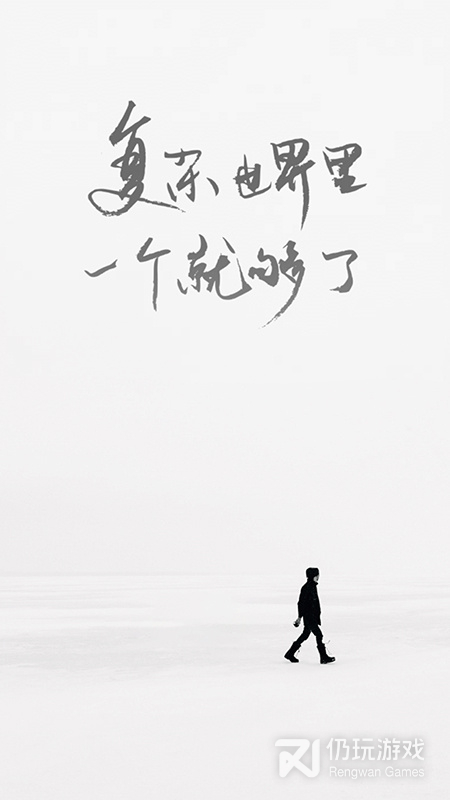 复杂世界里
一个就够了
仍玩游戏
Rengwan Games